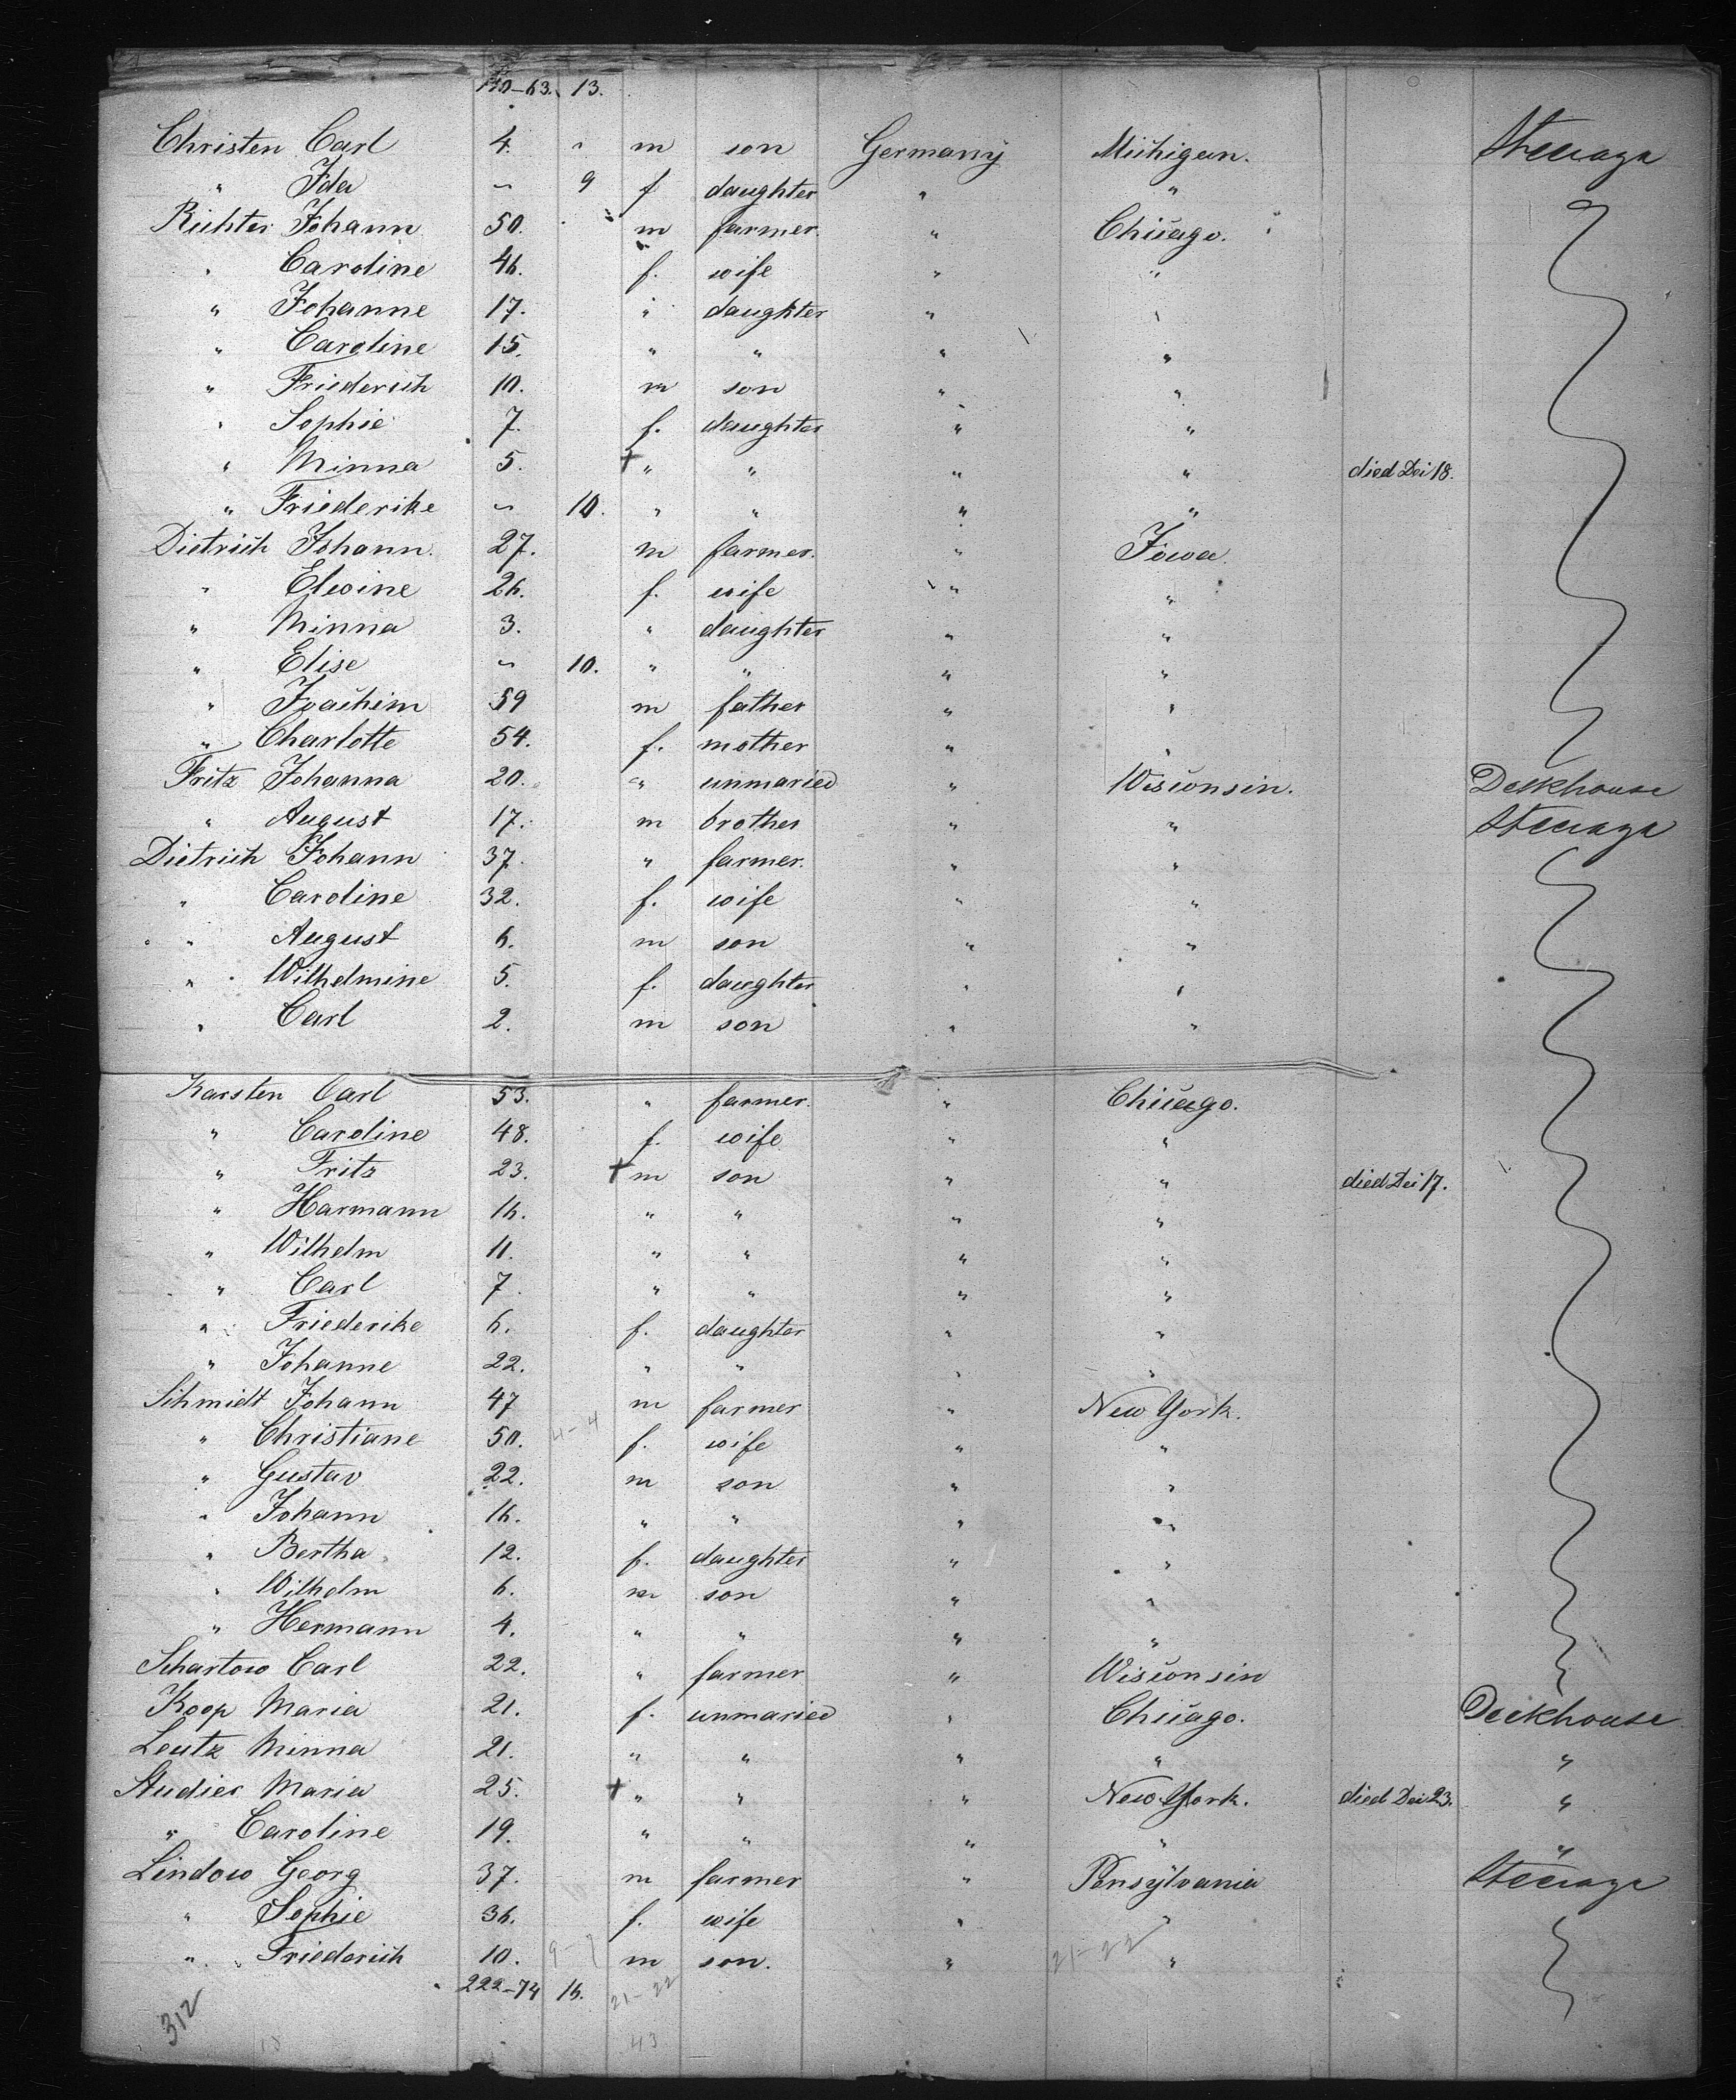 13.
Christen Carl 4. " m son Germany Michigan. Steerage
" Ida " 9 f daughter " "
Richter Johann 50. m farmer. " Chicago.
" Caroline 46. f. wife " "
" Johanne 17. " daughter " "
" Caroline 15. " " " "
" Friederich 10. m son " "
" Sophie 7. f. daughter " "
" Minna 5. + " " " " died Dec 18.
" Friederike " 10. " " " "
Dietrich Johann. 27. m farmer. " Iowa.
" Elwine 26. f. wife " "
" Minna 3. " daughter " "
" Elise " 10. " " " "
" Joachim 59 m father " "
" Charlotte 54. f. mother " "
Fritz Johanna 20. " unmaried " Wisconsin. Deckhouse
" August 17. m brother " " Steerage
Dietrich Johann 37. " farmer. " "
" Caroline 32. f. wife " "
" August 6. m son " "
" Wilhelmine 5. f. daughter " "
" Carl 2. m son " "
Karsten Carl 53. " farmer. " Chicago.
" Caroline 48. f. wife " "
" Fritz 23. + m son " " died Dec 17.
" Harmann 16. " " " "
" Wilhelm 11. " " " "
" Carl 7. " " " "
" Friederike 6. f. daughter " "
" Johanne 22. " " " "
Schmidt Johann 47 m farmer " New York.
" Christiane 50. 4-4 f. wife " "
" Gustav 22. m son " "
" Johann 16. " " " "
" Bertha 12. f. daughter " "
" Wilhelm 6. m son " "
" Hermann 4. " " " "
Schartow Carl 22. " farmer " Wisconsin
Koop Maria 21. f. unmaried " Chicago. Deckhouse
Leutz Minna 21. " " " " "
Studier Maria 25. + " " " New York. died Dec 23. "
" Caroline 19. " " " " "
Lindow Georg 37. m farmer " Pensylvania Steerage
" Sophie 36. f. wife " "
" Friederich 10. m son. " 21-22 "
222-74 16. 21-22
312
43